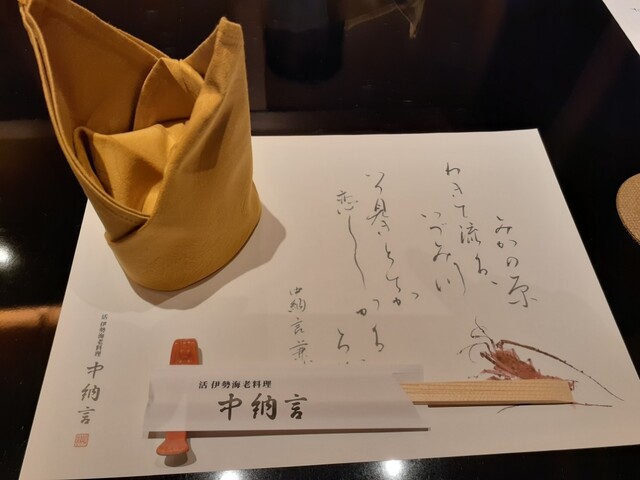 みかの原
わきて流るゝ
いづみ川
いつ見きとてか
恋しかる
中納言兼
活 伊勢海老料理
中納言
活 伊勢海老料理
中納言